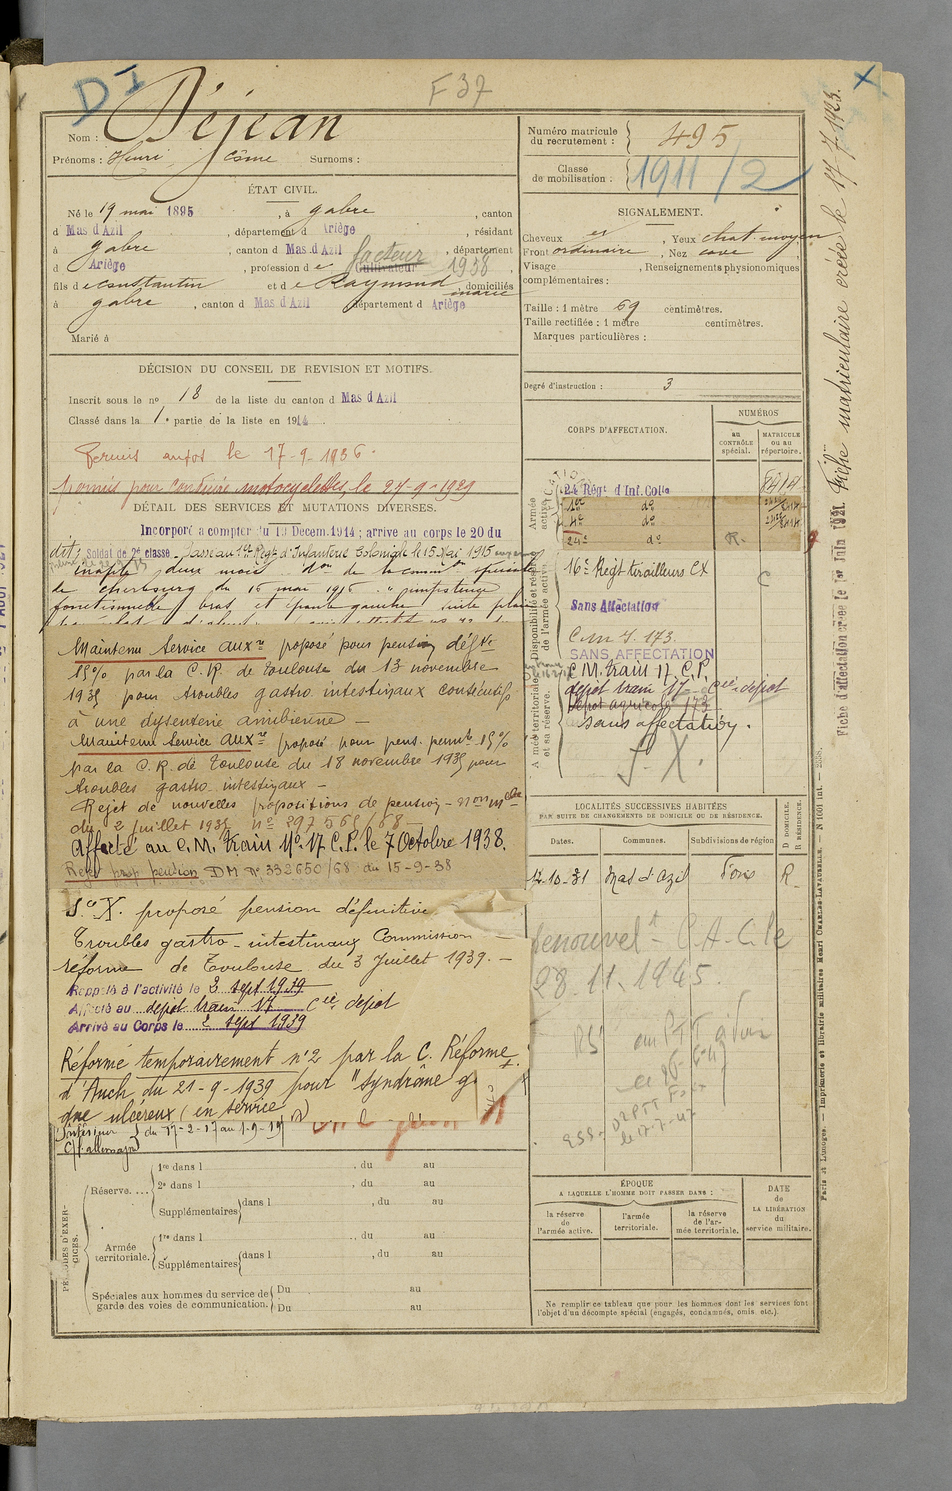 DI
F37
X
Nom : Déjean
Prénoms : Henri Côme Surnoms :
ÉTAT CIVIL.
Né le 19 mai 1895, à Gabre, canton
d Mas d'Azil, département d Ariège, résidant
à Gabre, canton d Mas d'Azil, département
d Ariège, profession de Cultivateur facteur 1938
fils de Constantin et de Raymond, domiciliés
à Gabre, canton d Mas d'Azil département d Ariège
marié
Marié à
DÉCISION DU CONSEIL DE REVISION ET MOTIFS.
Inscrit sous le no 18 de la liste du canton d Mas d'Azil
Classé dans la 1e partie de la liste en 1914.
Permis autos le 17-9-1936.
permis pour conduire motocyclettes, le 27-9-1929
DÉTAIL DES SERVICES ET MUTATIONS DIVERSES.
Incorporé a compter du 19 Décem. 1914 ; arrive au corps le 20 du
dit; Soldat de 2e classe. Passe au 1er Régt d'Infanterie Coloniale le 15 Mai 1915
inapte deux mois don de la common spéciale
de Cherbourg du 16 mai 1916 impotence
fonctionnelle bras et épaule gauche suite plaie
Maintenu Service auxre proposé pour pension défve
15% par la C.R. de Toulouse du 13 novembre
1935 pour troubles gastro intestinaux consécutifs
à une dysenterie amibienne —
Maintenu Service auxre proposé pour pens. permte 15%
par la C.R. de Toulouse du 18 novembre 1935 pour
troubles gastro intestinaux —
Rejet de nouvelles propositions de pension — non melle
du 2 juillet 1935 no 297565/68 —
Affecté au C.M. Train No 17 C.P. le 7 Octobre 1938.
Rejet prop pension DM No 332650/68 du 15-9-38
Sce X. proposé pension définitive
Troubles gastro-intestinaux Commission —
réforme de Toulouse du 3 Juillet 1939. —
Rappelé à l'activité le 2 sept 1939
Affecté au dépôt train 17 Cie dépôt
Arrivé au Corps le 2 sept 1939
Réformé temporairement no 2 par la C. Réforme
d'Auch du 21-9-1939 pour "syndrome g
que ulcéreux (en service)
Intérieur du 17-2-17 au 1-9-19
C/ allemagne
PÉRIODES D'EXERCICES.
Réserve....
1re dans l , du au
2e dans l , du au
Supplémentaires dans l , du au
Armée territoriale.
1re dans l , du au
Supplémentaires dans l , du au
Spéciales aux hommes du service de garde des voies de communication.
Du au
Du au
Numéro matricule du recrutement : 495
Classe de mobilisation : 1911/2
SIGNALEMENT.
Cheveux , Yeux chat. moyen
Front ordinaire, Nez cave,
Visage , Renseignements physionomiques
complémentaires :
Taille : 1 mètre 69 centimètres.
Taille rectifiée : 1 mètre centimètres.
Marques particulières :
Degré d'instruction : 3
CORPS D'AFFECTATION.
NUMÉROS
au CONTRÔLE spécial.
MATRICULE ou au répertoire.
Armée active.
24 Régt d'Inf. Colle 8414
1er do
4e do
24e do R.
Disponibilité et réserve de l'armée active.
16e Régt tirailleurs CX C
Sans Affectation
C.M.I. 173.
SANS AFFECTATION
Armée territoriale et sa réserve.
C.M. Train 17 C.P.
dépôt train 17 - Cie dépôt
Dépôt agricole 173
sans affectation.
S. X.
LOCALITÉS SUCCESSIVES HABITÉES
PAR SUITE DE CHANGEMENTS DE DOMICILE OU DE RÉSIDENCE.
Dates. Communes. Subdivisions de région
D. DOMICILE. R. RÉSIDENCE.
12-10-31 Mas d'Azil Foix R.
Renouvelt C.A.C. le
28.11.1945
RS
ESS
le 17-7-47
ÉPOQUE
A LAQUELLE L'HOMME DOIT PASSER DANS :
la réserve de l'armée active.
l'armée territoriale.
la réserve de l'armée territoriale.
DATE de LA LIBÉRATION du service militaire.
Ne remplir ce tableau que pour les hommes dont les services font
l'objet d'un décompte spécial (engagés, condamnés, omis, etc.).
Fiche matriculaire créée le 17-7-1923.
Fiche d'affectation créée le 1er Juin 1921.
Paris et Limoges. — Imprimerie et librairie militaires Henri CHARLES-LAVAUZELLE. — N 1001 int. — 2638.